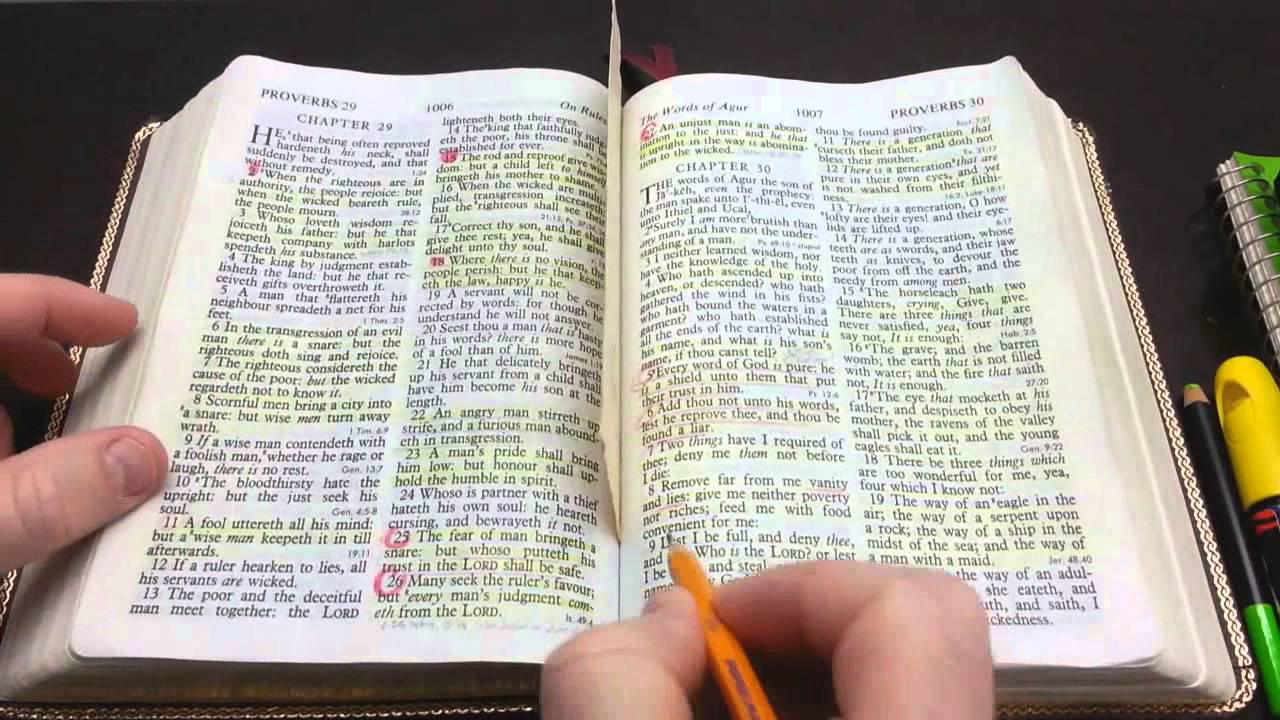 PROVERBS 29
1006
On Rules
CHAPTER 29
HE, that being often reproved
hardeneth his neck, shall
suddenly be destroyed, and that
without remedy. 1:24
2 When the righteous are in
authority, the people rejoice: but
when the wicked beareth rule,
the people mourn. 28:12
3 Whoso loveth wisdom re-
joiceth his father: but he that
keepeth company with harlots
spendeth his substance.
4 The king by judgment estab-
lisheth the land: but he that re-
ceiveth gifts overthroweth it.
5 A man that flattereth his
neighbour spreadeth a net for his
feet. 1 Thes. 2:5
6 In the transgression of an evil
man there is a snare: but the
righteous doth sing and rejoice.
7 The righteous considereth the
cause of the poor: but the wicked
regardeth not to know it.
8 Scornful men bring a city into
a snare: but wise men turn away
wrath. 1 Tim. 6:9
9 If a wise man contendeth with
a foolish man, whether he rage or
laugh, there is no rest. Gen. 13:7
10 The bloodthirsty hate the
upright: but the just seek his
soul. Gen. 4:5-8
11 A fool uttereth all his mind:
but a wise man keepeth it in till
afterwards. 19:11
12 If a ruler hearken to lies, all
his servants are wicked.
13 The poor and the deceitful
man meet together: the LORD
lighteneth both their eyes.
14 The king that faithfully judg-
eth the poor, his throne shall be
established for ever.
15 The rod and reproof give wis-
dom: but a child left to himself
bringeth his mother to shame.
16 When the wicked are multi-
plied, transgression increaseth:
but the righteous shall see their
fall.
17 Correct thy son, and he shall
give thee rest; yea, he shall give
delight unto thy soul.
18 Where there is no vision, the
people perish: but he that keep-
eth the law, happy is he.
19 A servant will not be cor-
rected by words: for though he
understand he will not answer.
20 Seest thou a man that is hasty
in his words? there is more hope
of a fool than of him. James 1:19
21 He that delicately bringeth
up his servant from a child shall
have him become his son at the
length.
22 An angry man stirreth up
strife, and a furious man abound-
eth in transgression.
23 A man's pride shall bring
him low: but honour shall up-
hold the humble in spirit.
24 Whoso is partner with a thief
hateth his own soul: he heareth
cursing, and bewrayeth it not.
25 The fear of man bringeth a
snare: but whoso putteth his
trust in the LORD shall be safe.
26 Many seek the ruler's favour;
but every man's judgment com-
eth from the LORD. Is. 49:4
The Words of Agur
1007
PROVERBS 30
27 An unjust man is an abom-
ination to the just: and he that
is upright in the way is abomina-
tion to the wicked.
CHAPTER 30
THE words of Agur the son of
Ja'-keh, even the prophecy:
the man spake unto I'-thi-el, even
unto Ithiel and Ucal,
2 Surely I am more brutish than
any man, and have not the under-
standing of a man. Ps. 49:10
3 I neither learned wisdom, nor
have the knowledge of the holy.
4 Who hath ascended up into
heaven, or descended? who hath
gathered the wind in his fists?
who hath bound the waters in a
garment? who hath established
all the ends of the earth? what is
his name, and what is his son's
name, if thou canst tell?
5 Every word of God is pure: he
is a shield unto them that put
their trust in him. Ps. 12:6
6 Add thou not unto his words,
lest he reprove thee, and thou be
found a liar.
7 Two things have I required of
thee; deny me them not before
I die:
8 Remove far from me vanity
and lies: give me neither poverty
nor riches; feed me with food
convenient for me:
9 Lest I be full, and deny thee,
and Who is the LORD? or lest
I be and steal,
thou be found guilty. Eccl. 7:21
11 There is a generation that
curseth their father, and doth not
bless their mother. Ex. 21:17
12 There is a generation that are
pure in their own eyes, and yet
is not washed from their filthi-
ness. 16:2; Luke 18:11
13 There is a generation, O how
lofty are their eyes! and their eye-
lids are lifted up. 6:17
14 There is a generation, whose
teeth are as swords, and their jaw
teeth as knives, to devour the
poor from off the earth, and the
needy from among men.
15 The horseleach hath two
daughters, crying, Give, give.
There are three things that are
never satisfied, yea, four things
say not, It is enough: Hab. 2:5
16 The grave; and the barren
womb; the earth that is not filled
with water; and the fire that saith
not, It is enough. 27:20
17 The eye that mocketh at his
father, and despiseth to obey his
mother, the ravens of the valley
shall pick it out, and the young
eagles shall eat it. Gen. 9:22
18 There be three things which
are too wonderful for me, yea,
four which I know not:
19 The way of an eagle in the
air; the way of a serpent upon
a rock; the way of a ship in the
midst of the sea; and the way of
a man with a maid. Jer. 48:40
the way of an adul-
she eateth, and
uth, and saith, I
ickedness.